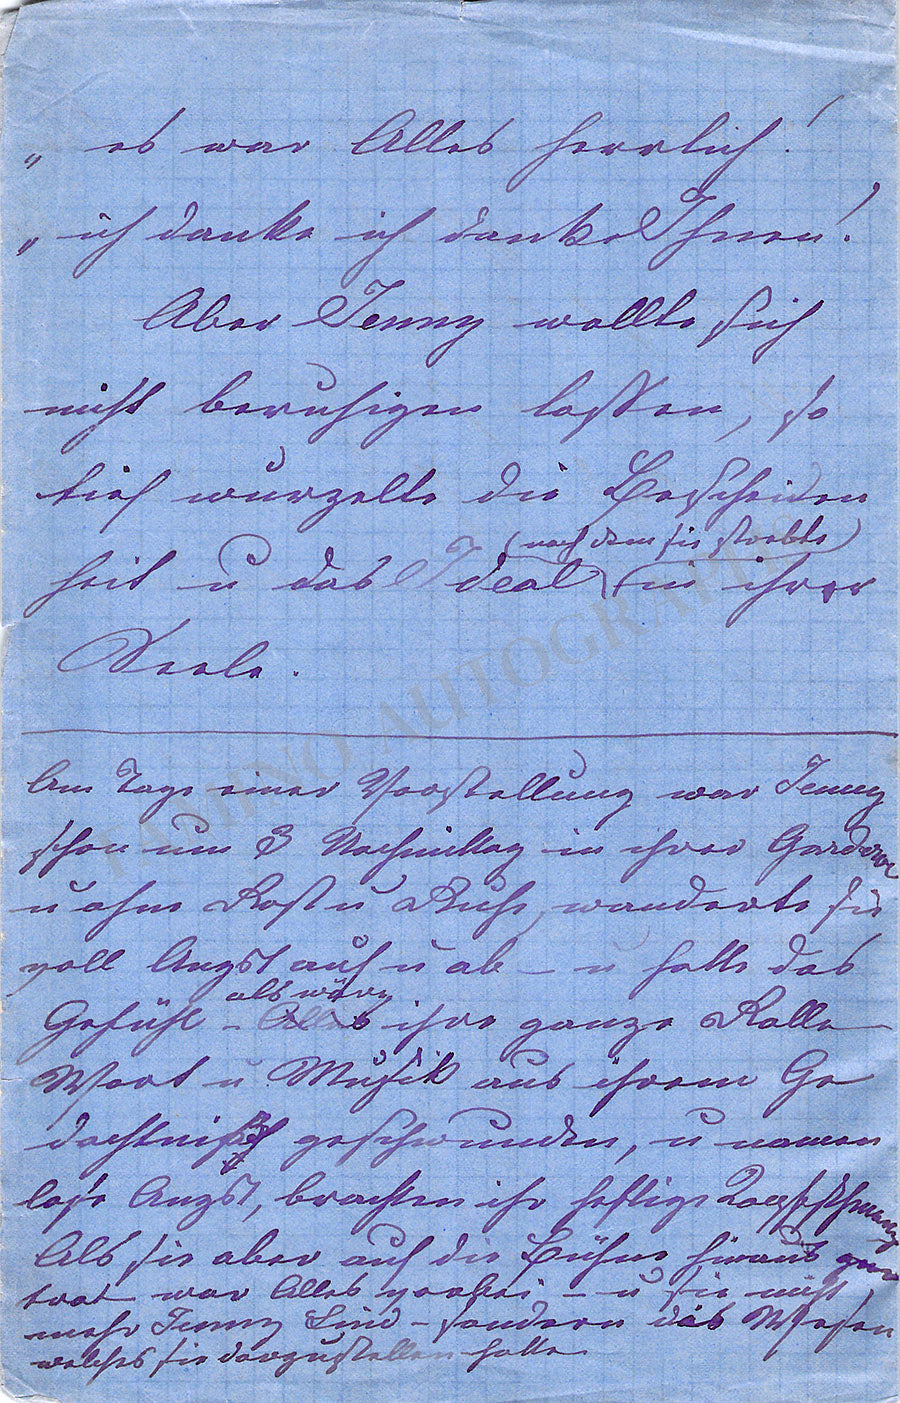 „ es war Alles herrlich!
„ ich danke ich danke Ihnen!
Aber Jenny wollte sich
nicht beruhigen lassen, so
tief wurzelte die Bescheiden
(nach dem sie strebte)
heit u das Ideal in ihrer
Seele.
Am Tage einer Vorstellung war Jenny
schon um 3 Nachmittag in ihrer Garderobe
u ohne Rast u Ruhe, wanderte sie
voll Angst auf u ab – u hatte das
als wäre
Gefühl – ihre ganze Rolle
Wort u Musik aus ihrem Ge
dächtniß geschwunden, u namen
lose Angst, brachten ihr heftige Kopfschmerzen
Als sie aber auf die Bühne hinaus
trat war Alles vorbei – u sie nicht
mehr Jenny Lind – sondern das Wesen
welches sie darzustellen hatte
TAMINO AUTOGRAPHS